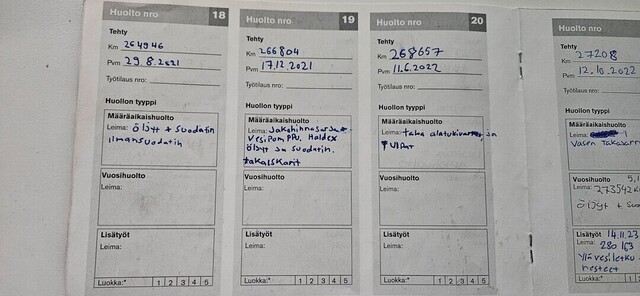 Huolto nro 18
Tehty
Km 264946
Pvm 29.8.2021
Työtilaus nro:
Huollon tyyppi
Määräaikaishuolto
Leima: öljyt + suodatin
ilmansuodatin
Vuosihuolto
Leima:
Lisätyöt
Leima:
Luokka:* 1 2 3 4 5
Huolto nro 19
Tehty
Km 266804
Pvm 17.12.2021
Työtilaus nro:
Huollon tyyppi
Määräaikaishuolto
Leima: Jakohihnasarja +
Vesipumppu. Haldex
öljyt ja suodatin.
takaiskarit
Vuosihuolto
Leima:
Lisätyöt
Leima:
Luokka:* 1 2 3 4 5
Huolto nro 20
Tehty
Km 268657
Pvm 11.6.2022
Työtilaus nro:
Huollon tyyppi
Määräaikaishuolto
Leima: taka alatukivarret, ja
Vuosihuolto
Leima:
Lisätyöt
Leima:
Luokka:* 1 2 3 4 5
Huolto nro
Tehty
Km 27208
Pvm 12.10.2022
Työtilaus nro:
Huollon tyyppi
Määräaikaishuolto
Leima:
Vasen Takajarr
Vuosihuolto
Leima: 273542k
öljyt + suo
Lisätyöt 14.11.23
Leima: 280163
Ylävesiletku
nesteet
Luokka:* 1 2